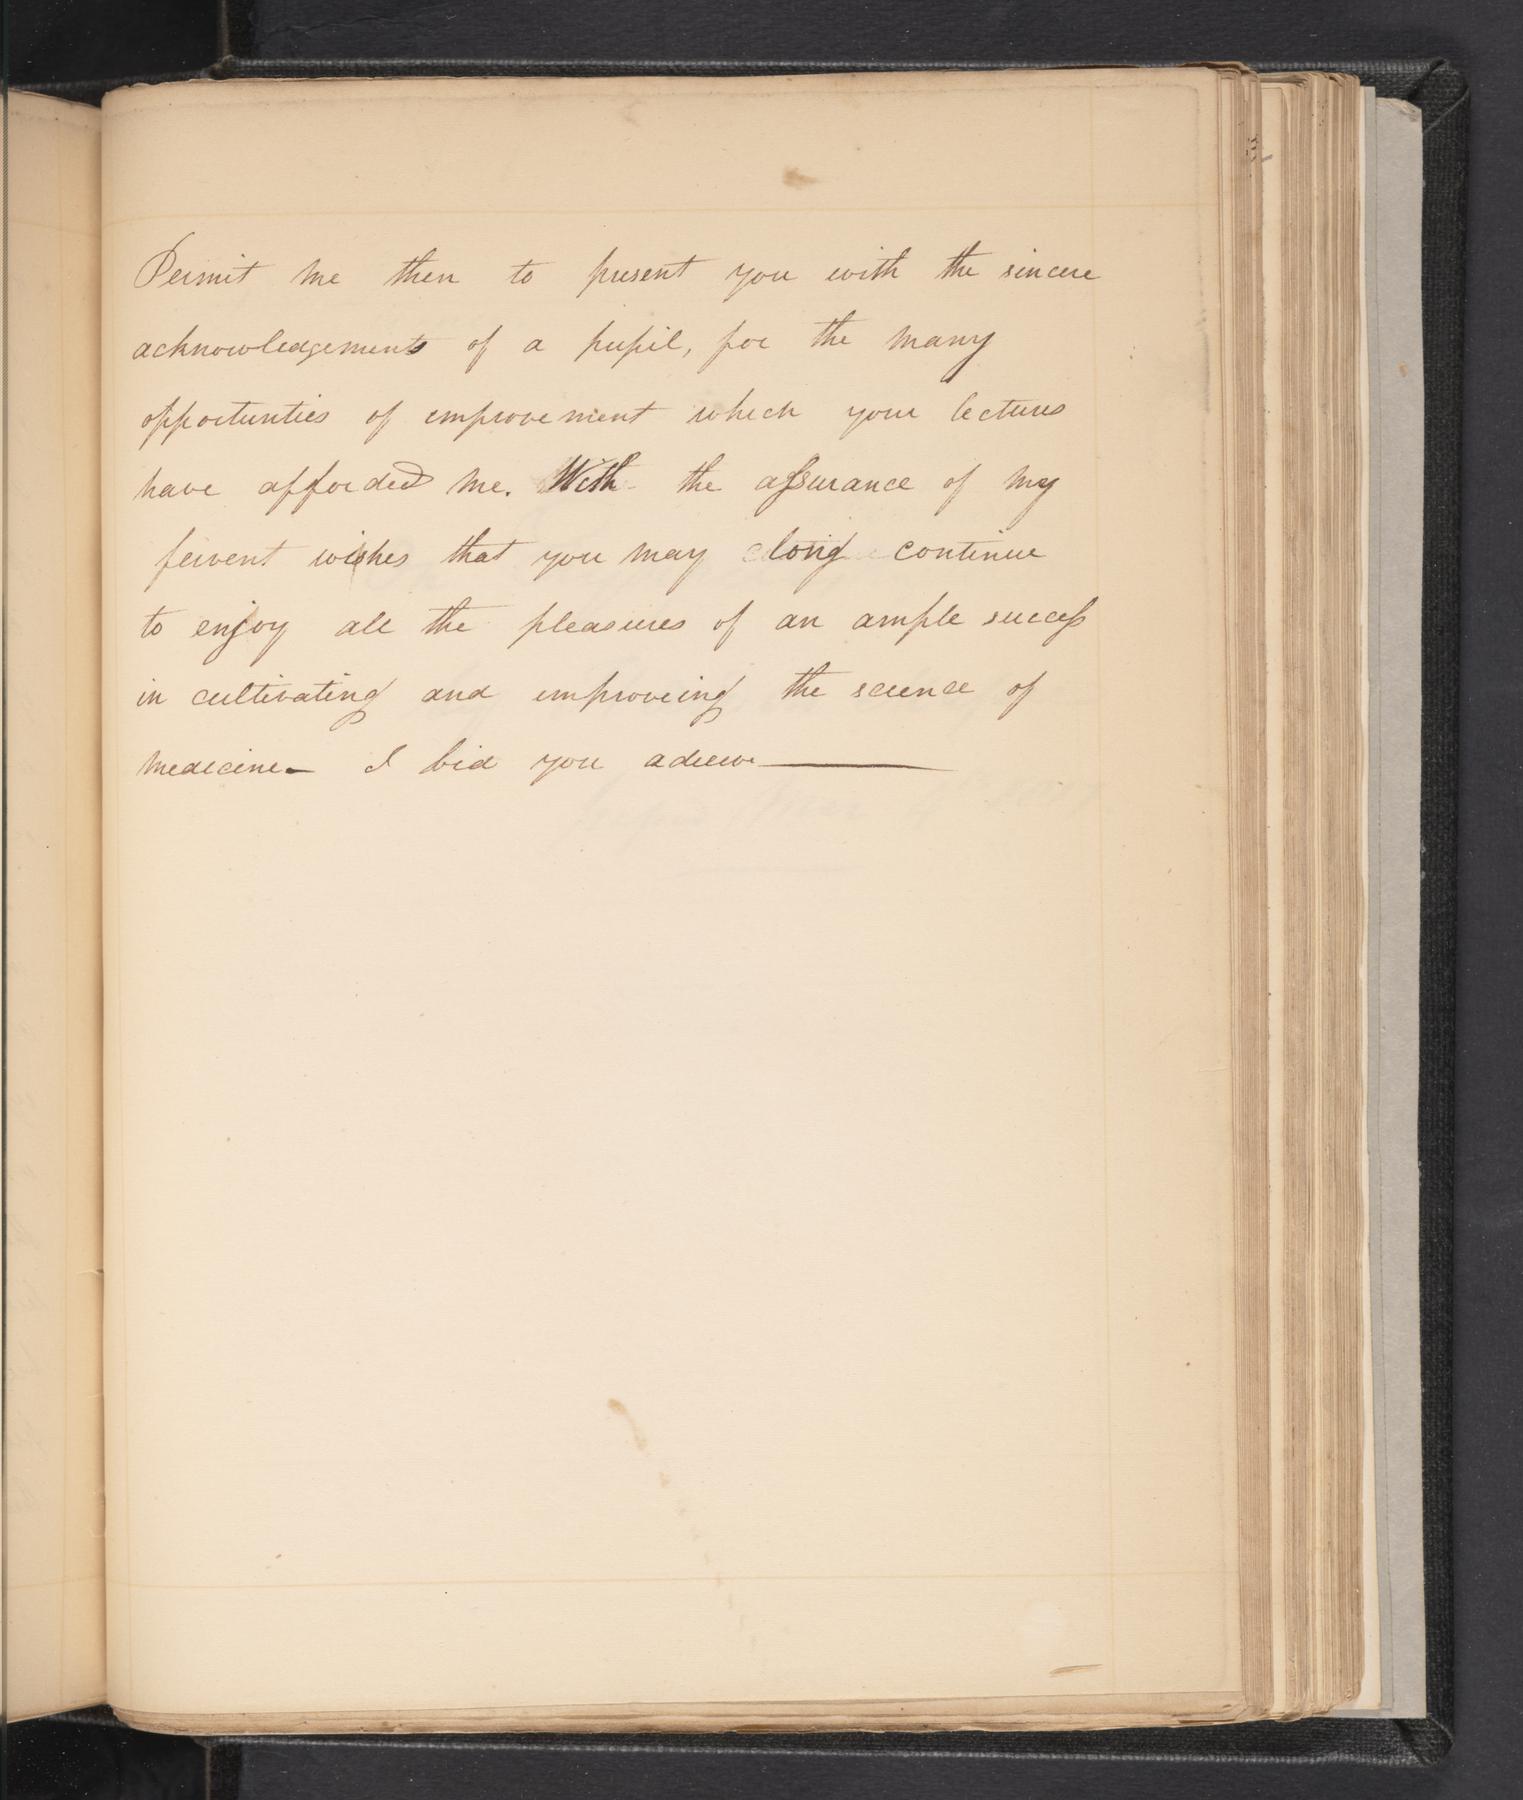 Permit me then to present you with the sincere
acknowledgements of a pupil, for the many
opportunties of improvement which your lectures
have afforded me. With the aſsurance of my
fervent wishes that you may long continue
to enjoy all the pleasures of an ample succeſs
in cultivating and improveing the science of
medicine- I bid you adieu